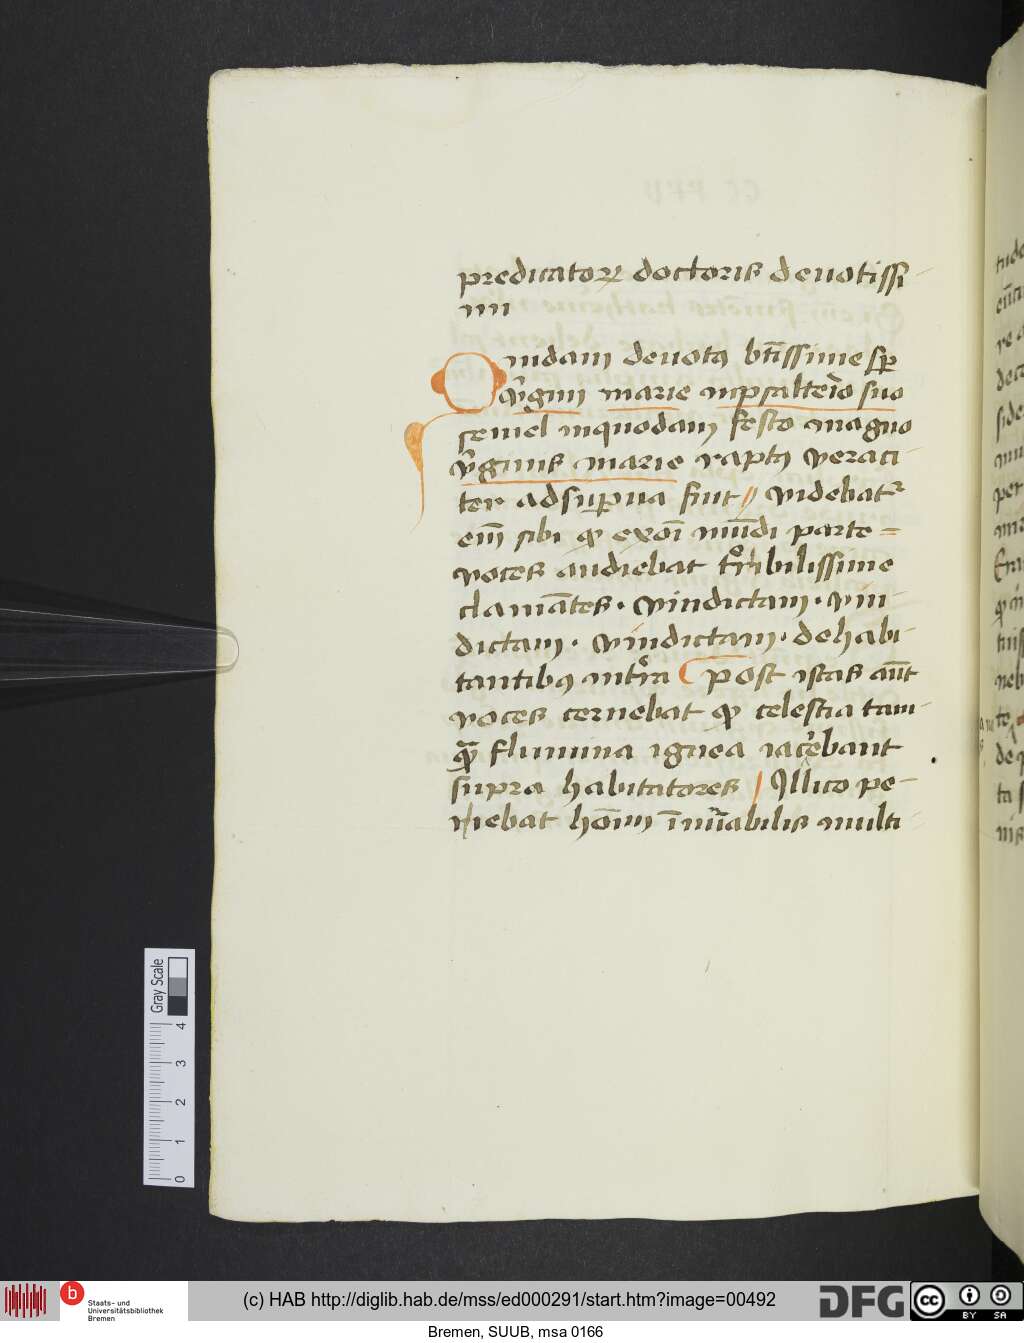 predicatorꝝ doctoris deuotissi-
mi
Quidam deuotꝰ bt̄issime sp̲
v̄gini marie inpsalterio suo
semel inquodam festo magno
v̄ginis marie raptꝰ veraci-
ter adsup̲na fuit // videbatr
em̄ sibi ꝙ exoī mūdi parte=
voces audiebat trͥbilissime
clamātes · vindictam · vin-
dictam · vindictam · dehabi-
tantibꝰ intͥra Post istas aūt
voces cernebat ꝙ celestia tam-
ꝙᷓ flumina ignea iacebant
supra habitatores / Illico pe-
riebat hoīm īnūabilis multi-
Gray Scale
0 1 2 3 4
b
Staats- und
Universitätsbibliothek
Bremen
(c) HAB http://diglib.hab.de/mss/ed000291/start.htm?image=00492
DFG
cc BY SA
Bremen, SUUB, msa 0166